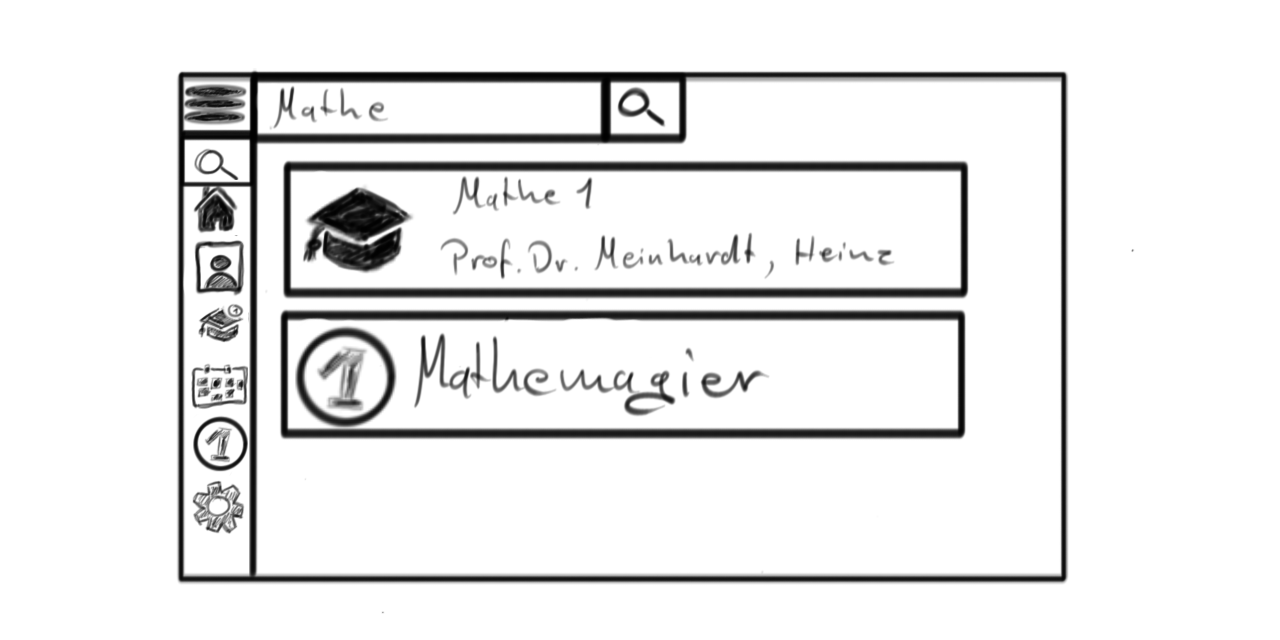 Mathe
Mathe 1
Prof. Dr. Meinhardt, Heinz
1 Mathemagier
1